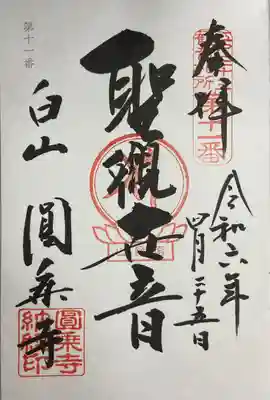 奉拝
第十一番
令和六年
四月二十五日
聖觀世音
第十一番
白山 圓乗寺
圓乗寺
納経印